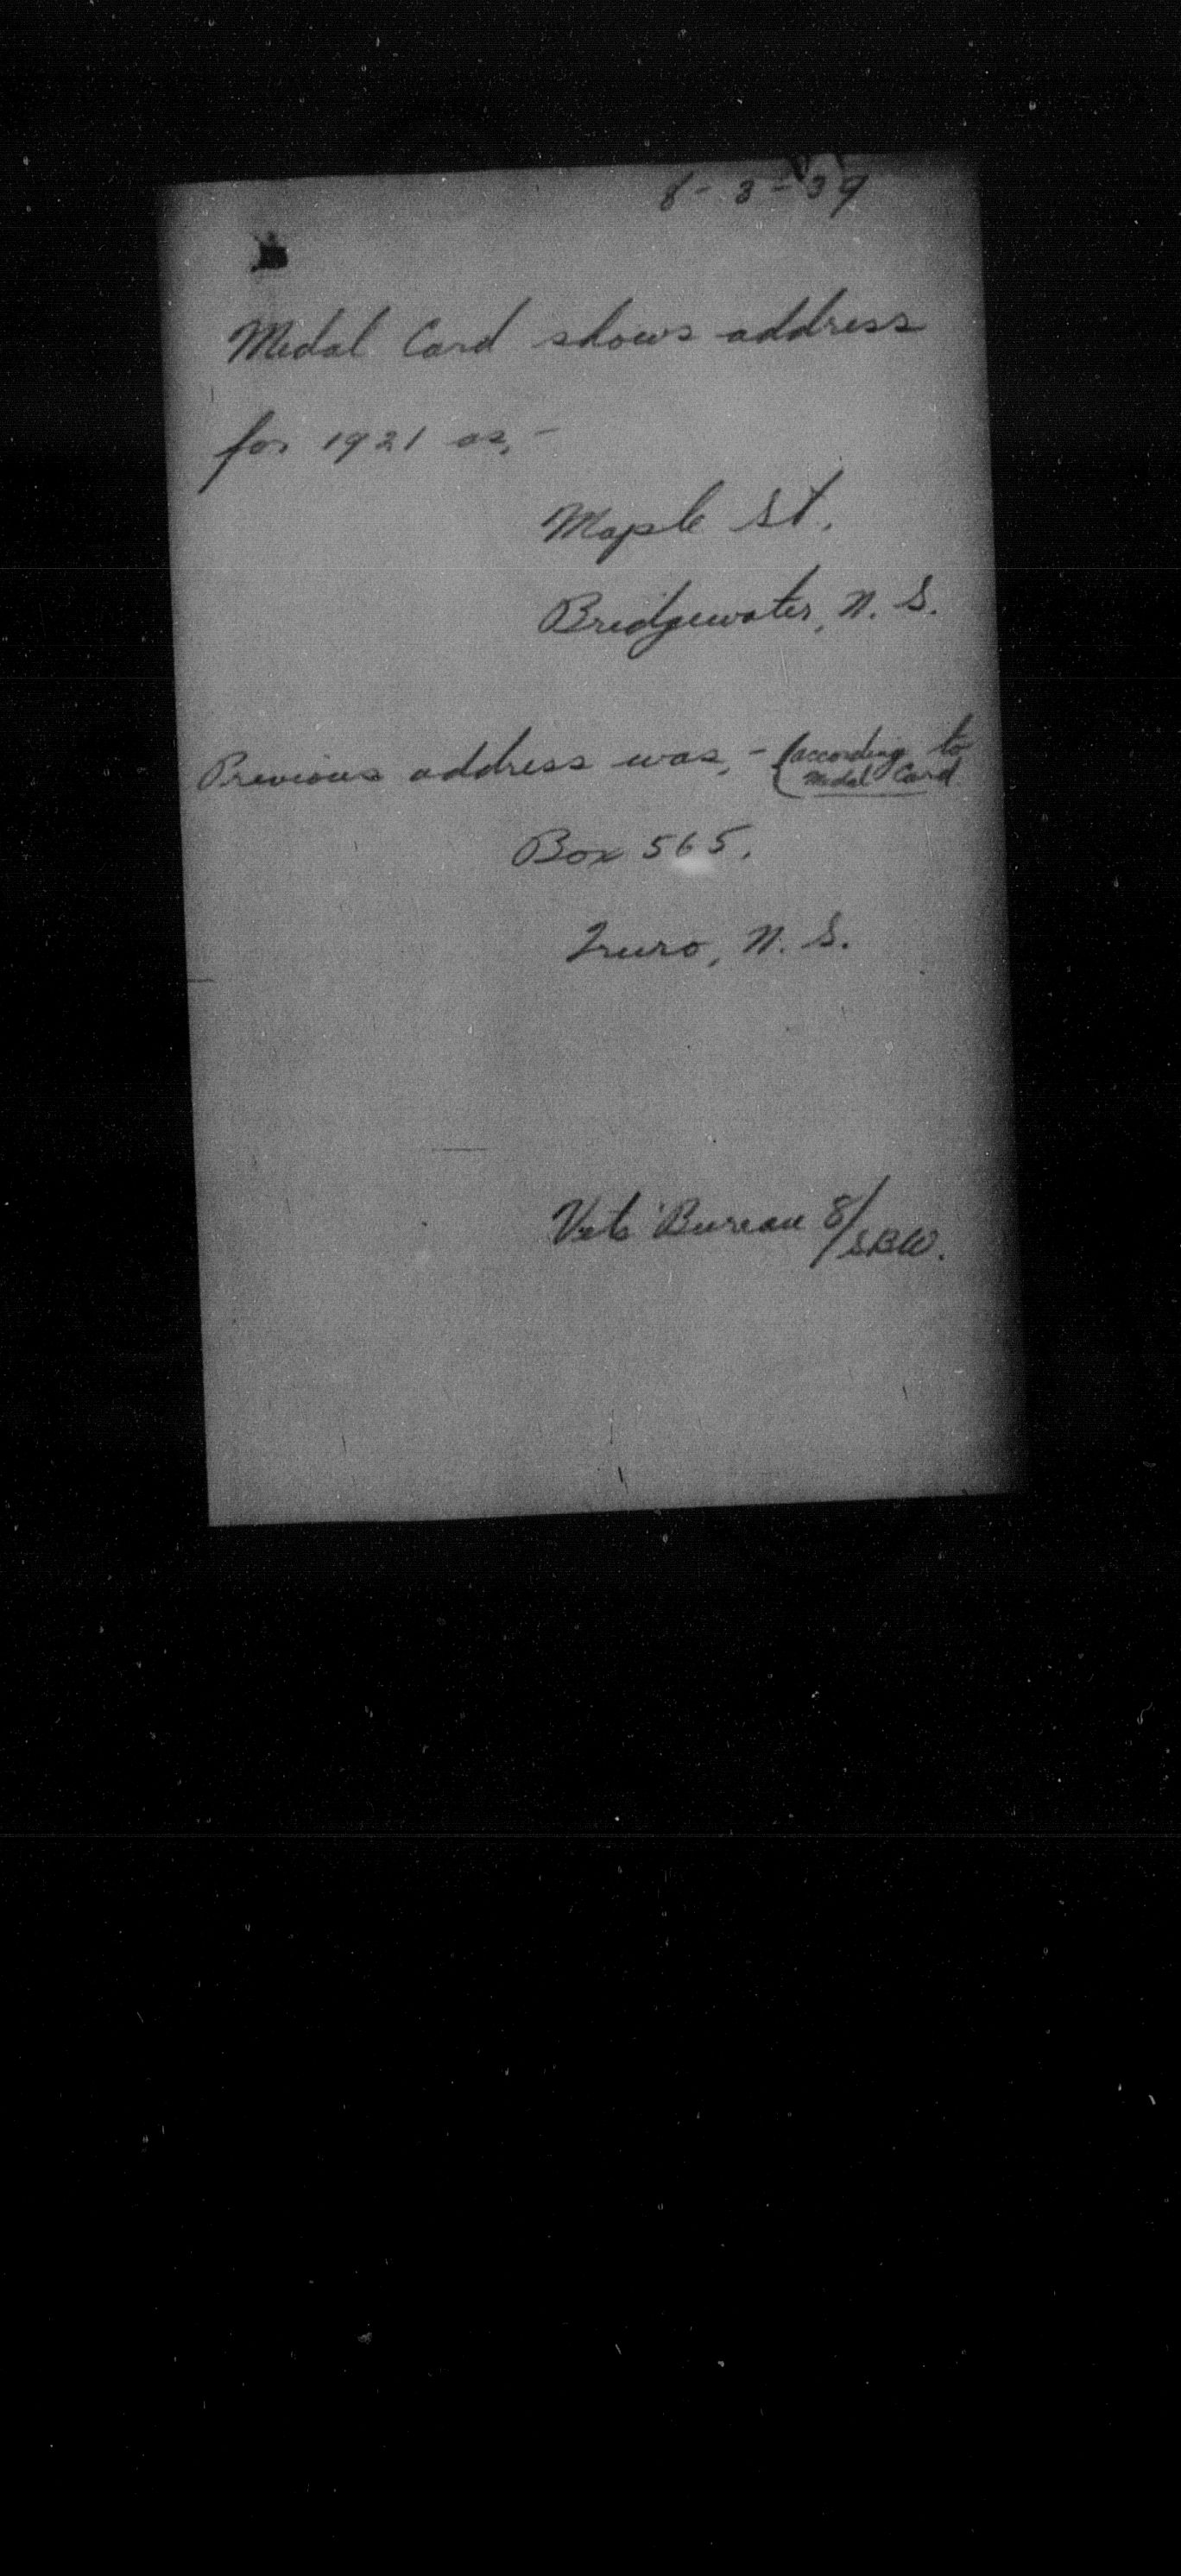 8-3-39
Medal Card shows address
for 1921 as,-
Maple St.
Bridgewater, N. S.
Previous address was,- (according to
Medal Card
Box 565.
Truro, N. S.
Vets Bureau 8/
SBW.